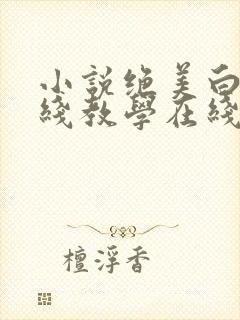 小說绝美白
綫教學在綫
檀浮香